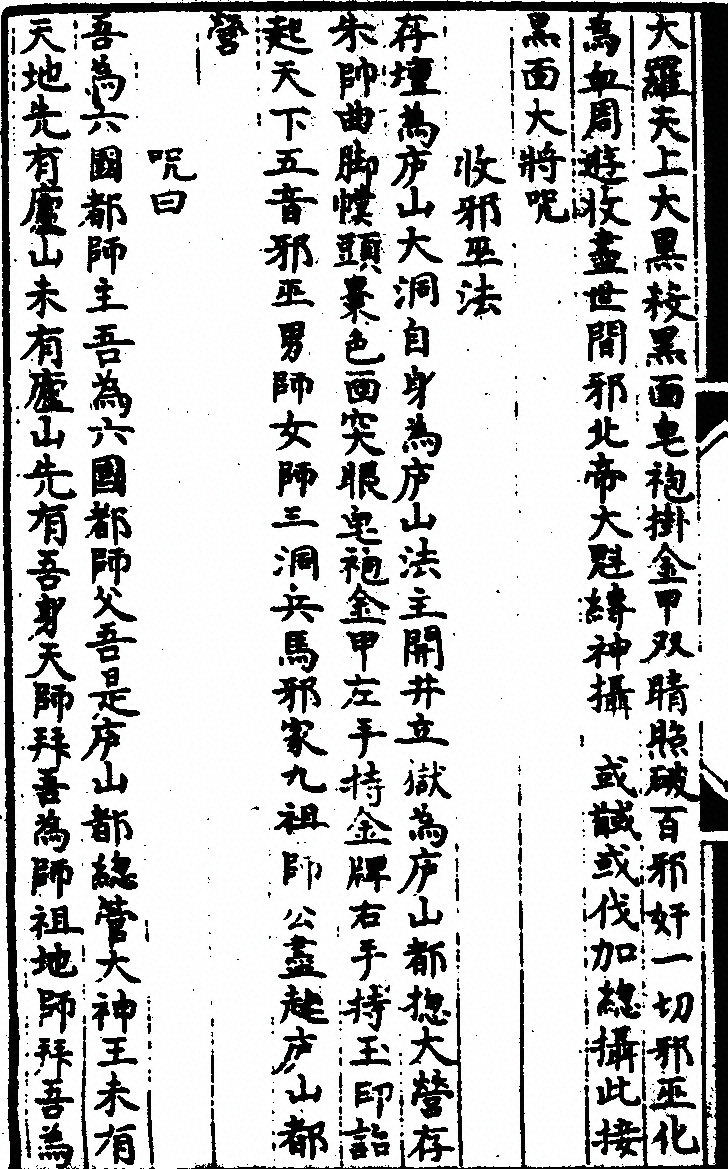 大羅天上大黑殺黑面皂袍掛金甲双睛照破百邪奸一切邪巫化
為血周遊收盡世間邪北帝大魁縛神攝　或馘或伐加總攝此接
黑面大將咒
收邪巫法
存壇為庐山大洞自身為庐山法主開井立獄為庐山都揔大營存
朱師曲脚幞頭棗色面突眼皂袍金甲左手持金牌右手持玉印詔
起天下五音邪巫男師女師三洞兵馬邪家九祖師公盡赴庐山都
營
咒曰
吾為六國都師主吾為六國都師父吾是庐山都總營大神王未有
天地先有廬山未有廬山先有吾身天師拜吾為師祖地師拜吾為